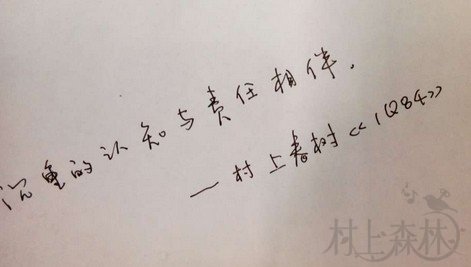 沉重的认知与责任相伴.
—村上春树《1Q84》
村上森林